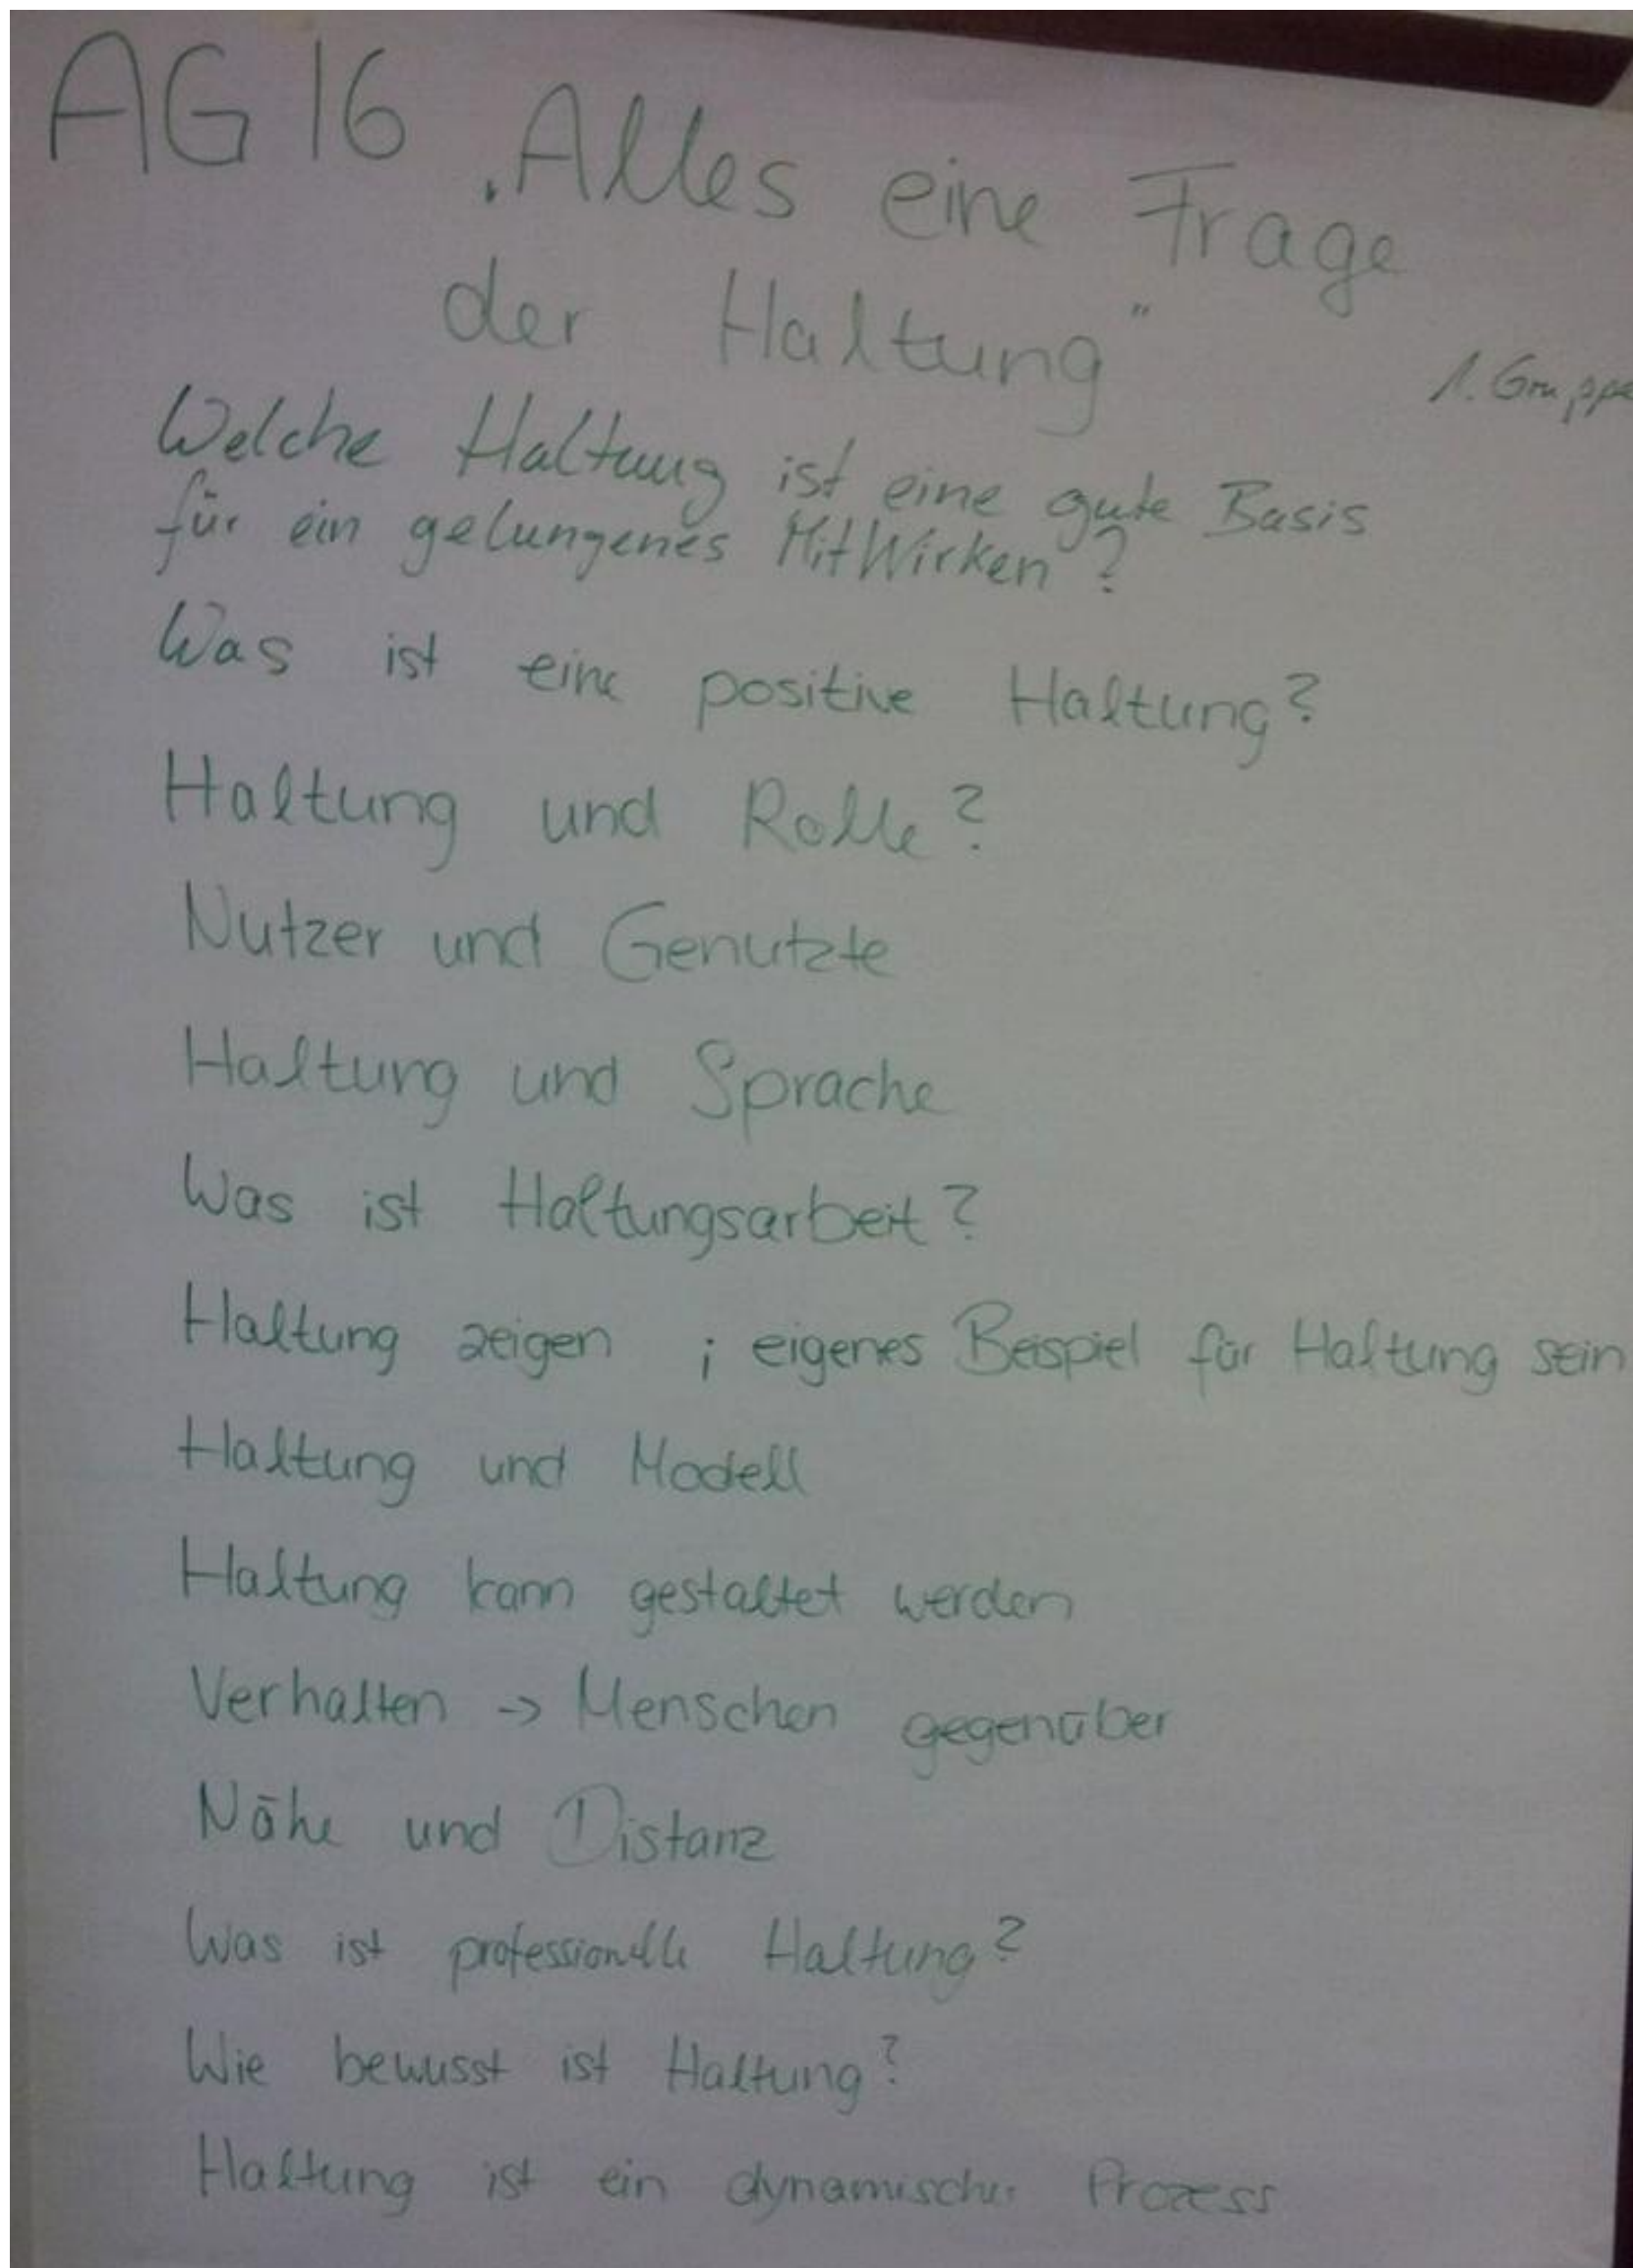 AG 16 „Alles eine Frage
der Haltung"
1. Gruppe
Welche Haltung ist eine gute Basis
für ein gelungenes MitWirken?
Was ist eine positive Haltung?
Haltung und Rolle?
Nutzer und Genutzte
Haltung und Sprache
Was ist Haltungsarbeit?
Haltung zeigen ; eigenes Beispiel für Haltung sein
Haltung und Modell
Haltung kann gestaltet werden
Verhalten -> Menschen gegenüber
Nähe und Distanz
Was ist professionelle Haltung?
Wie bewusst ist Haltung?
Haltung ist ein dynamischer Prozess